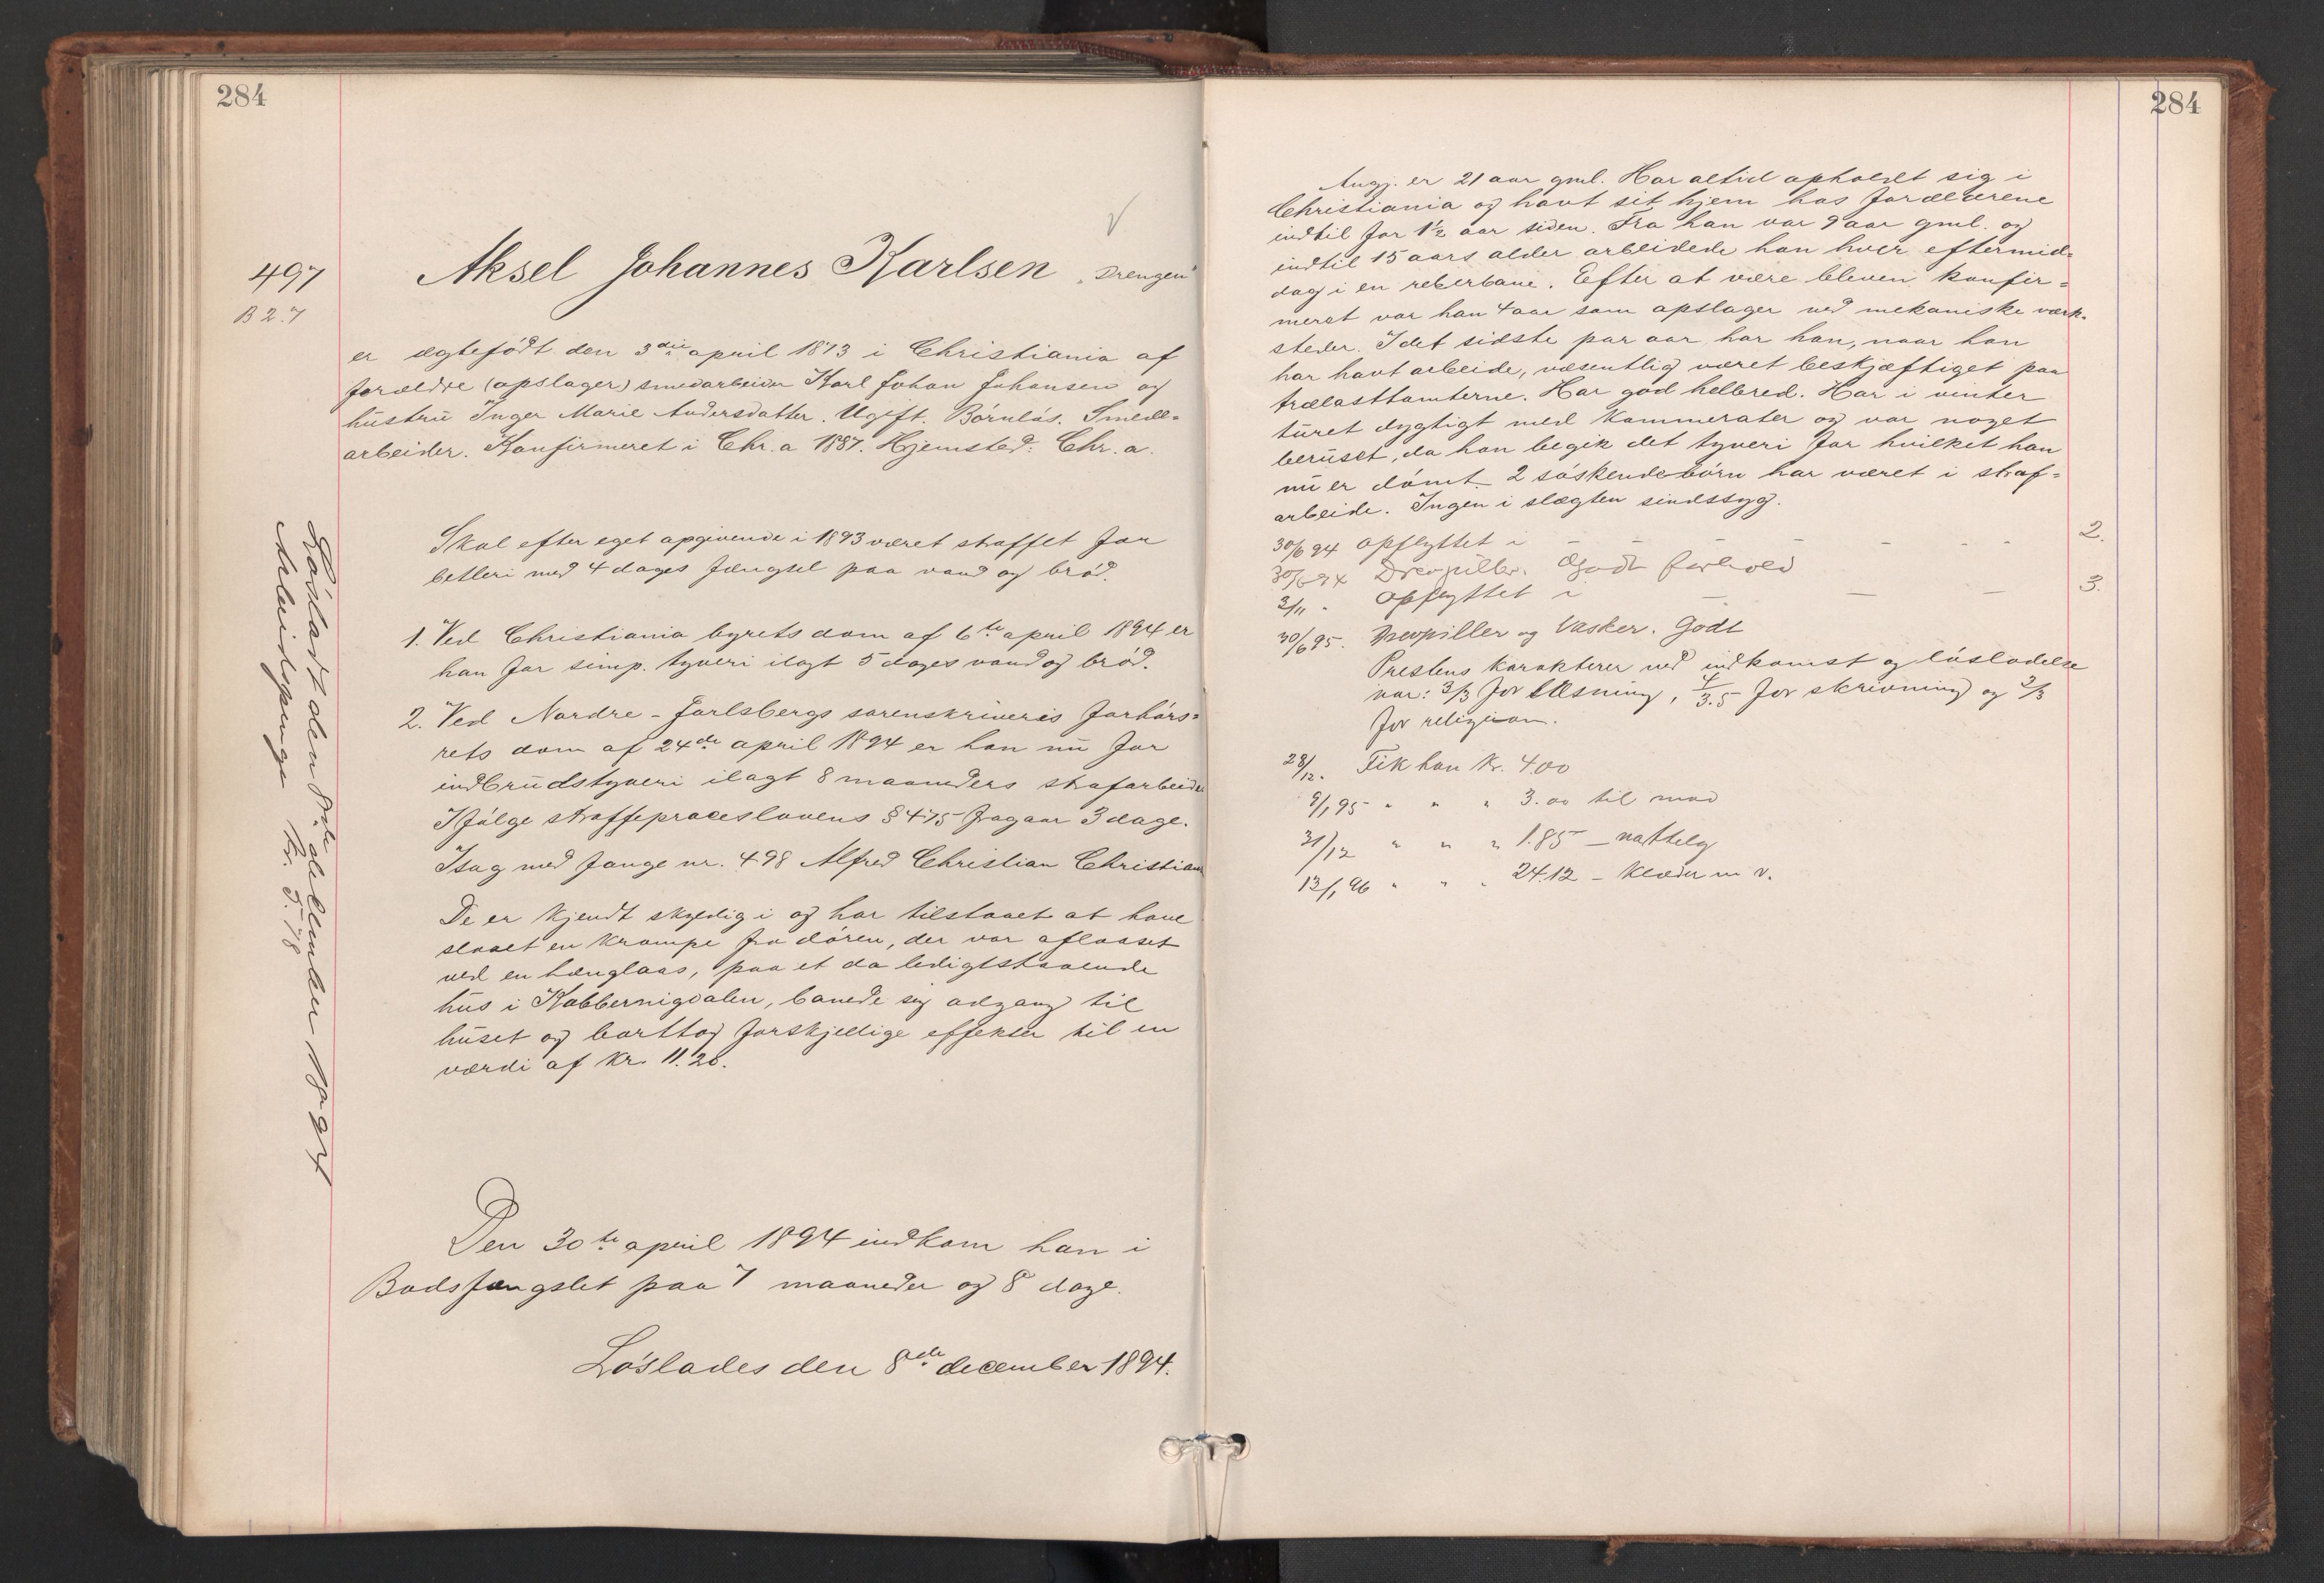 284
497
B 2.7
Aksel Johannes Karlsen „Drengen“
er ægtefødt den 3die april 1873 i Christiania af
forældre (opslager) smedarbeider Karl Johan Johansen og
hustru Inger Marie Andersdatter. Ugift. Børnløs. Smed=
arbeider. Konfirmeret i Chr.a 1887. Hjemsted: Chr.a.
Skal efter eget opgivende i 1893 været straffet for
betleri med 4 dages fængsel paa vand og brød.
1. Ved Christiania byrets dom af 6te april 1894 er
han for simp. tyveri ilagt 5 dages vand og brød.
2. Ved Nordre-Jarlsbergs sorenskriveris forhørs=
rets dom af 24de april 1894 er han nu for
indbrudstyveri ilagt 8 maaneders strafarbeide
Ifølge straffeproceslovens § 475 fragaar 3 dage.
Isag med fange nr. 498 Alfred Christian Christians
De er kjendt skyldig i og har tilstaaet at have
slaaet en krampe fra døren, der var aflaaset
ved en hænglaas, paa et da ledigtstaaende
hus i Kobbernigdalen, banede sig adgang til
huset og borttog forskjellige effekter til en
værdi af Kr. 11.20.
Den 30te april 1894 indkom han i
Bodsfængslet paa 7 maaneder og 8 dage.
Løslades den 8de december 1894.
Løsladt den 8de december 1894
Arbeidspenge Kr. 5.78
284
Angj. er 21 aar gml. Har altid opholdt sig i
Christiania og havt sit hjem hos forældrene
indtil for 1½ aar siden. Fra han var 9 aar gml. og
indtil 15 aars alder arbeidede han hver eftermid=
dag i en reberbane. Efter at være bleven konfir=
meret var han 4 aar som opslager ved mekaniske værk=
steder. I det sidste par aar har han, naar han
har havt arbeide, væsentlig været beskjæftiget paa
trælasttomterne. Har god helbred. Har i vinter
turet dygtigt med kammerater og var noget
beruset, da han begik det tyveri for hvilket han
nu er dømt. 2 søskendebørn har været i straf=
arbeide. Ingen i slægten sindssyg.
30/6 94 opflyttet i - - - - - 2.
30/6 94 Drevpiller. Godt forhold
2/11 " Opflyttet i - - - 3.
30/6 95. Drevpiller og Vasker. Godt
Prestens karakterer ved indkomst og løsladelse
var: 3/3 for læsning, 4/3.5 for skrivning og 3/3
for religion.
28/12. Fik han Kr. 4.00
9/1 95 " " " 3.00 til mad
31/12 " " " 1.85 - nattelg
13/1 96 " " " 24.12 - klæder m v.